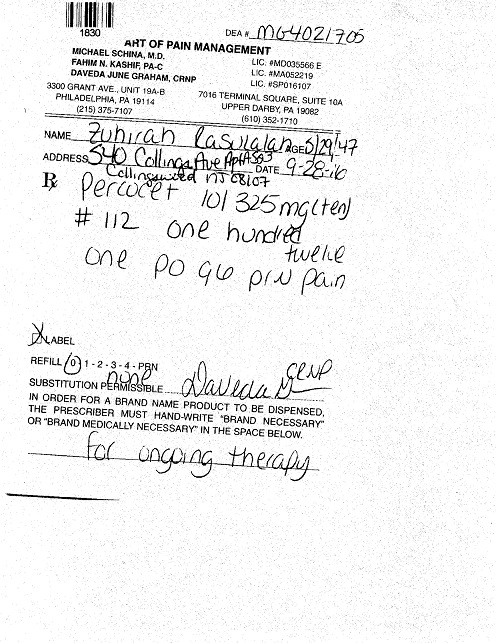 1830
DEA # MG4021705
ART OF PAIN MANAGEMENT
MICHAEL SCHINA, M.D.
LIC. #MD035566 E
FAHIM N. KASHIF, PA-C
LIC. #MA052219
DAVEDA JUNE GRAHAM, CRNP
LIC. #SP016107
3300 GRANT AVE., UNIT 19A-B
PHILADELPHIA, PA 19114
(215) 375-7107
7016 TERMINAL SQUARE, SUITE 10A
UPPER DARBY, PA 19082
(610) 352-1710
NAME Zuhirah AGE /29/47
ADDRESS 540 Collings Ave Apt
DATE 9-28-16
Collingswood NJ 08107
Rx Percocet 10/325mg (ten)
# 112 one hundred
twelve
one PO q6 prn pain
LABEL
REFILL 0 1 - 2 - 3 - 4 - PRN
none
SUBSTITUTION PERMISSIBLE Daveda CRNP
IN ORDER FOR A BRAND NAME PRODUCT TO BE DISPENSED,
THE PRESCRIBER MUST HAND-WRITE "BRAND NECESSARY"
OR "BRAND MEDICALLY NECESSARY" IN THE SPACE BELOW.
for ongoing therapy